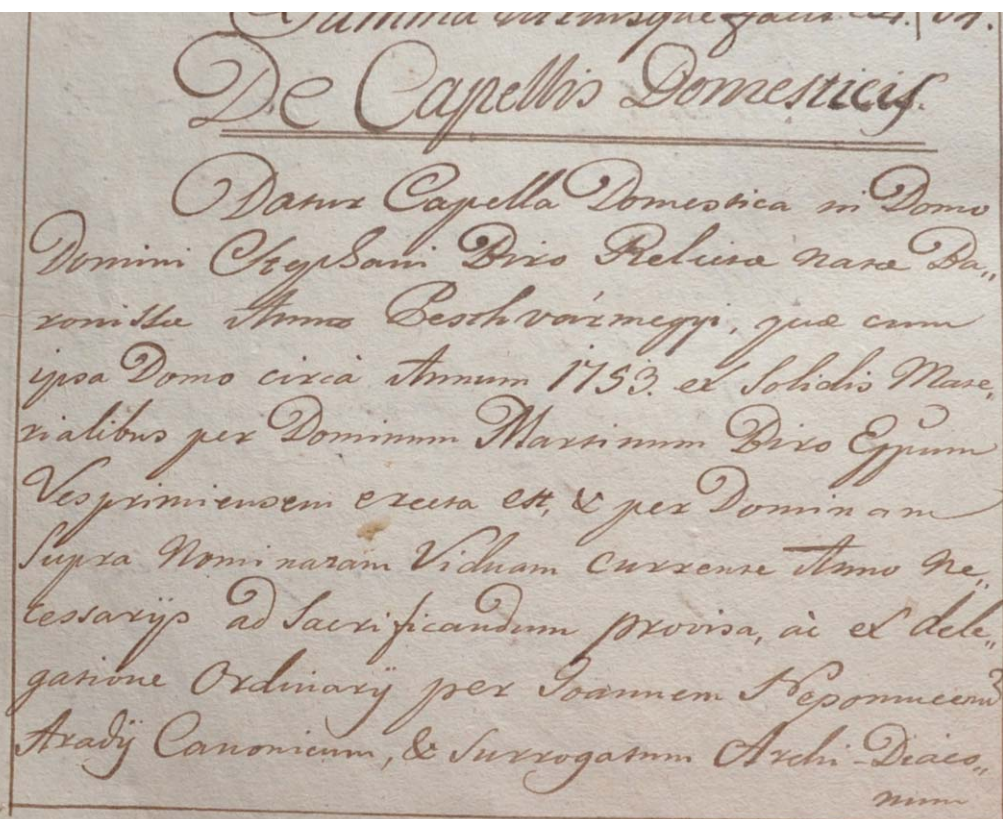 Summa utriusque
De Capellis Domesticis.
Datur Capella Domestica in Domo
Domini Stephani Biro Relictæ natæ Ba„
ronissæ Annæ Peschvármegyi, quæ cum
ipsa Domo circà Annum 1753. ex Solidis Mate„
rialibus per Dominum Martinum Biro Eppum
Vesprimiensem erecta est, & per Dominam
Supra Nominatam Viduam currente Anno Ne„
cessarijs ad Sacrificandum provisa, ac ex dele„
gatione Ordinarij per Joannem Nepomucenu
Aradÿ Canonicum, & Surrogatum Archi-Diaco„
num